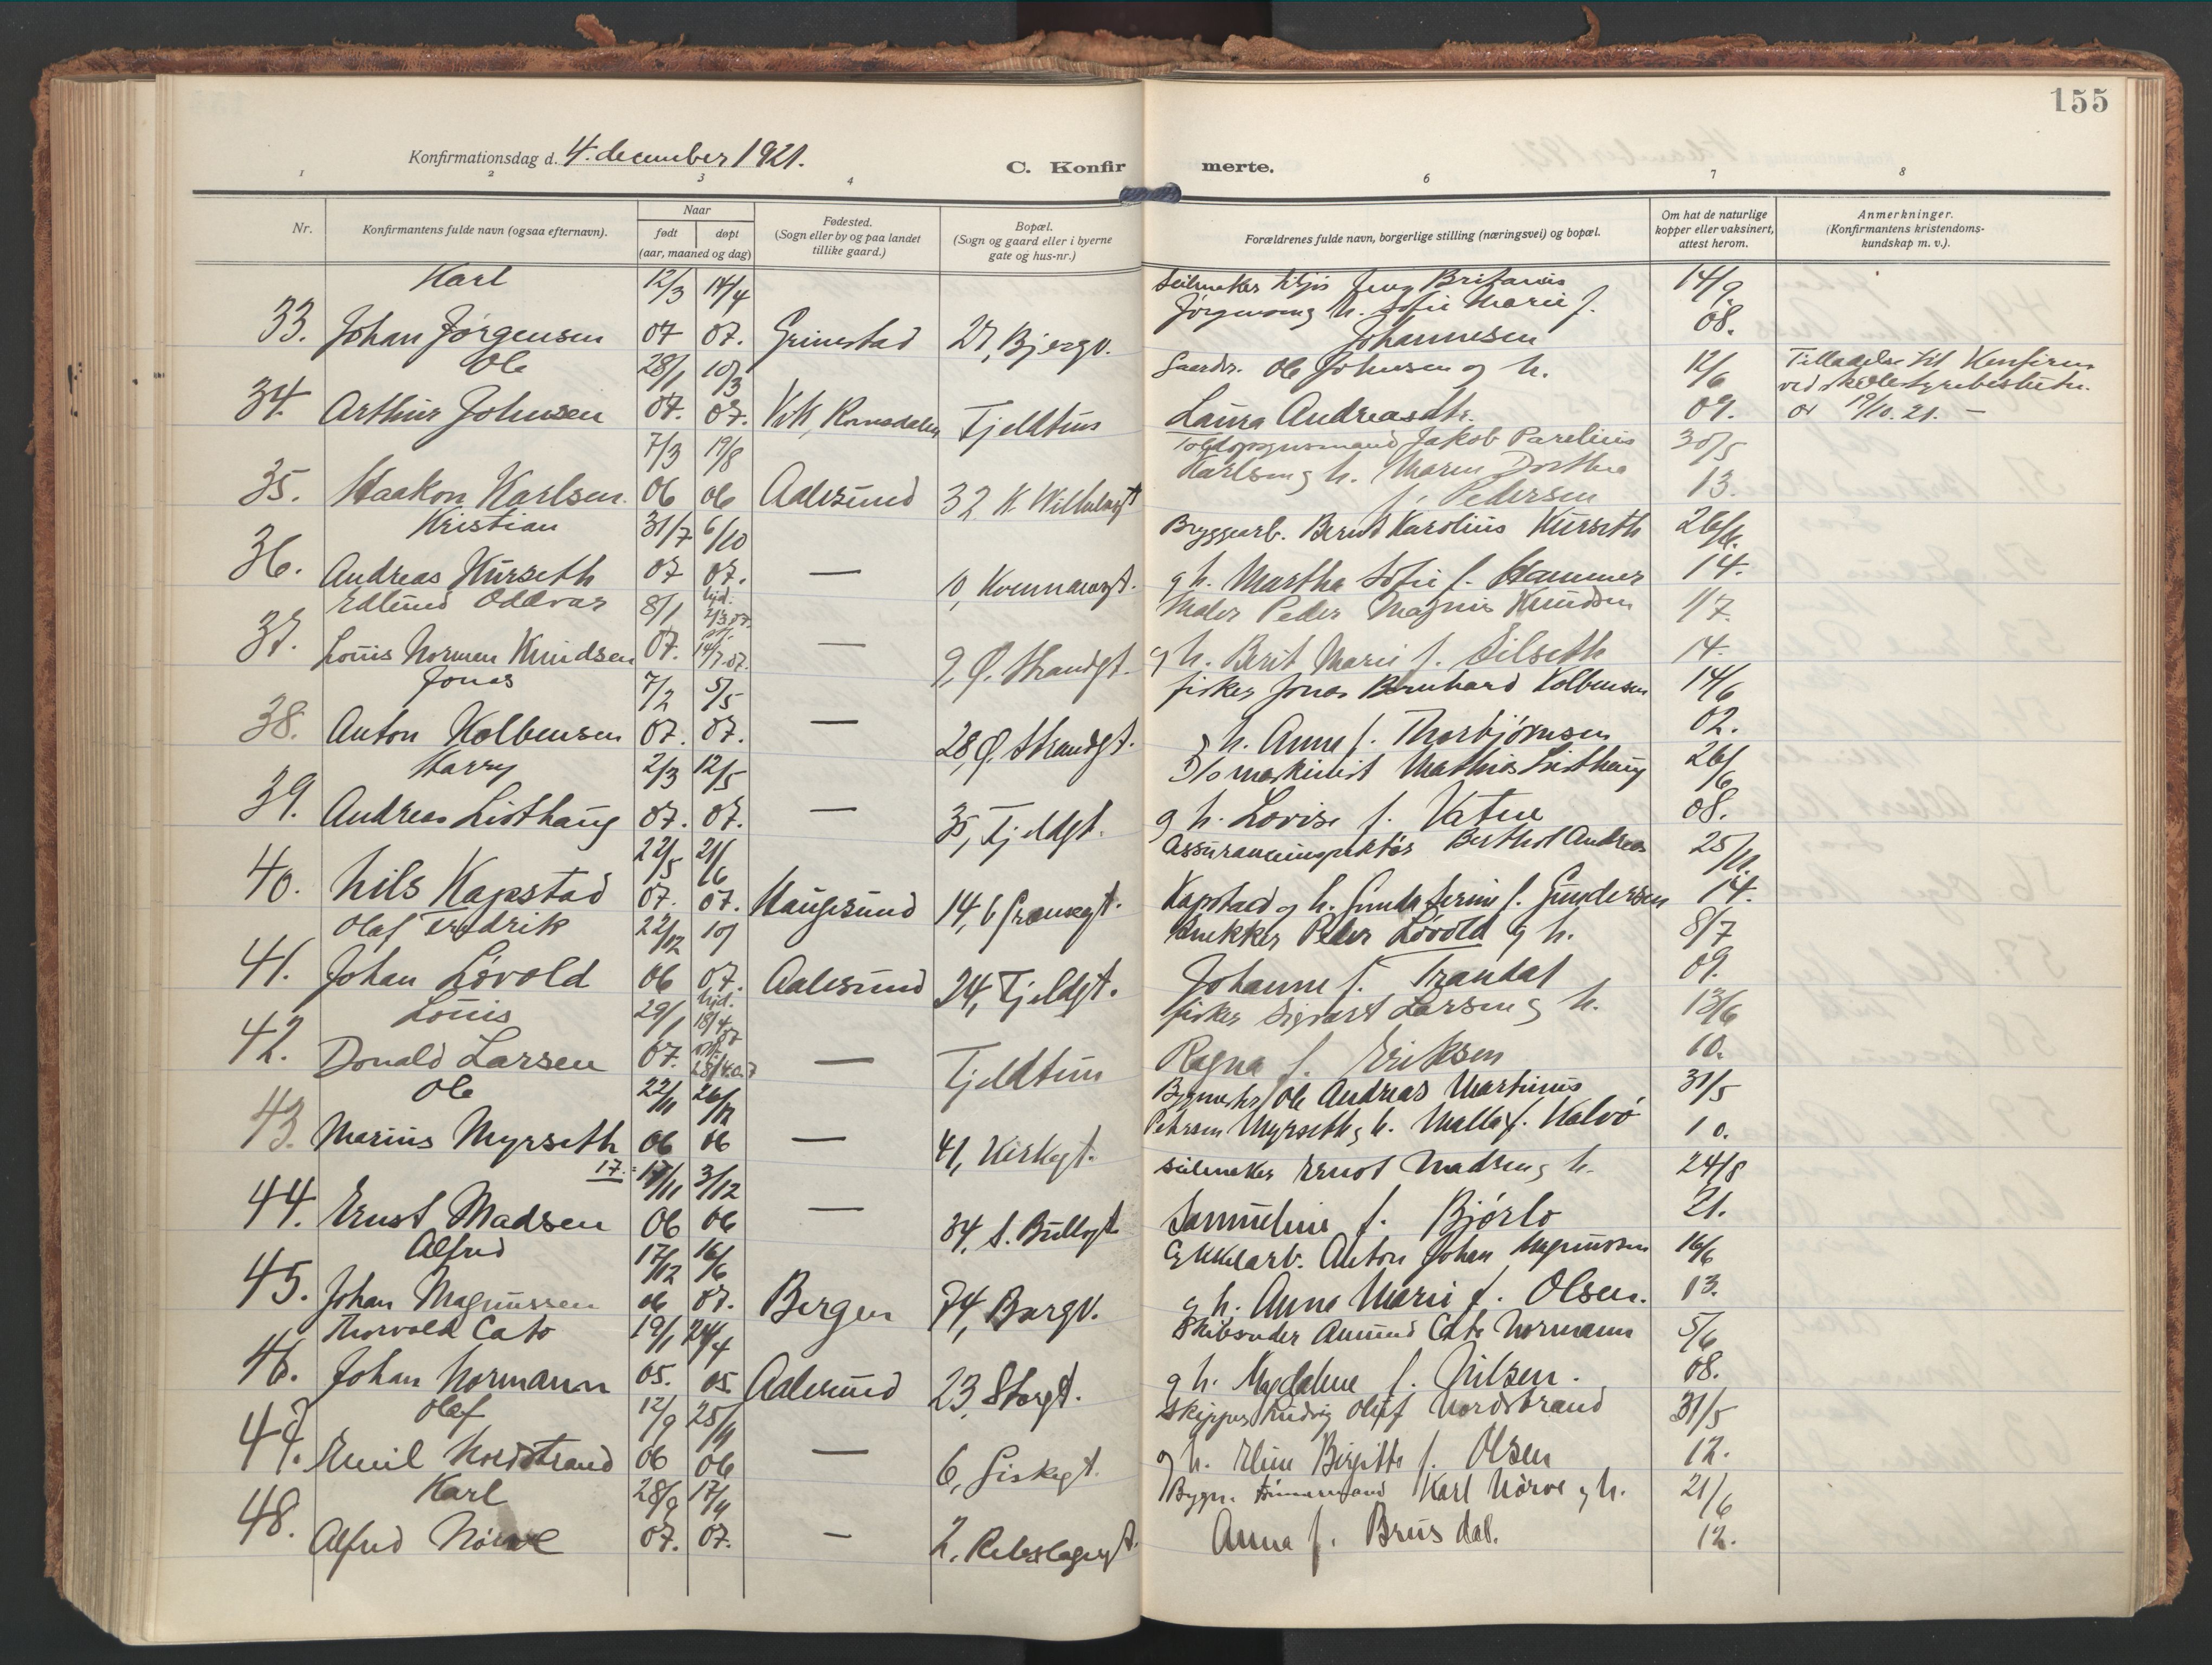 155
Konfirmationsdag d. 4. december 1921.
C. Konfirmerte.
1 2 3 4 6 7 8
Nr.
Konfirmantens fulde navn (ogsaa efternavn).
Naar
født døpt
(aar, maaned og dag)
Fødested.
(Sogn eller by og paa landet
tillike gaard.)
Bopæl.
(Sogn og gaard eller i byerne
gate og hus-nr.)
Forældrenes fulde navn, borgerlige stilling (næringsvei) og bopæl.
Om hat de naturlige
kopper eller vaksinert,
attest herom.
Anmerkninger.
(Konfirmantens kristendoms-
kundskap m. v.).
Karl 12/3 14/4 Seilmaker 14/9
Jørgensen g h. Sofie Marie f.
33. Johan Jørgensen 07 07. Grimstad 27, Bjergv. Johannesen 08.
Ole 28/1 10/3 Gaardbr. Ole Johnsen og h. 12/6 Tilladelse til Konfirm.
ved skolestyrebeslutn.
34. Arthur Johnsen 07. 07. Vik, Romsdalen Fjeldtun Laura Andreasdtr. 09. av 19/10. 21. —
7/3 19/8 Toldopsynsmand Jakob Parelius 30/5
Karlsen g h. Maren Dorthea
35. Haakon Karlsen 06 06 Aalesund 32 K. Wilhelmsgt f. Pedersen 13.
Kristian 31/7 6/10 Bryggearb. Bernt Karolius Kurseth 26/6.
36. Andreas Kurseth 07 07. — 10, Kvennavgt. g h. Martha Sofie f. Hammer 14.
Edlund Oddvar 8/1 hjd. 2/3 07. Maler Peder Magnus Knudsen 1/7.
37. Louis Normen Knudsen 07. 14/7. 07. — 9, Ø. Strandgt. g h. Berit Marie f. Eilseth 14.
Jonas 7/2 5/5 fisker Jonas Bernhard Kolbensen 14/6
38. Anton Kolbensen 07. 07. — 28, Ø. Strandgt. g h. Anna f. Thorbjørnsen 02.
Harry 2/3 12/5 D/s maskinist Mathias Listhaug 26/6
39. Andreas Listhaug 07. 07. — 35, Fjeldgt. g h. Lovise f. Vatne 08.
22/5 21/6 Assuranceinspektør Berthol Andreas 25/11.
40. Nils Kapstad 07. 07. Haugesund 14, b Grensegt. Kapstad og h. Gunda Serine f. Gundersen 14.
Olaf Fredrik 22/12 10/ Snekker Peder Løvold g h. 8/7
41. Johan Løvold 06 07. Aalesund 24, Fjeldgt. Johanne f. Trandal 09.
Louis 29/1 hjd. 18/4 07 fisker Sigvart Larsen g h. 13/6
42. Donald Larsen 07. 28/4 07 — Fjeldtun Ragna f. Eriksen 10.
Ole 22/11 26/12 Bygmester Ole Andreas Martinus 31/5
43. Marius Myrseth 06 06 — 41, Kirkegt. Petersen Myrseth g h. Malla f. Kalvø 10.
17. 17/11 3/12 seilmaker Ernst Madsen g h. 24/8
44. Ernst Madsen 06 06 — 34, S. Bullsgt. Samueline f. Bjørlo 21.
Alfred 17/12 16/6 Cykkelarb. Anton Johan Magnussen 16/6
45. Johan Magnussen 06 07. Bergen 74, Borgv. g h. Anna Marie f. Olsen. 13.
Thorvald Cato 19/1 24/4 Skibsreder Amund Cato Normann 5/6
46. Johan Normann 05. 05 Aalesund 23, Storgt. g h. Magdalene f. Nilsen. 08.
Olaf 12/9 25/11 skipper Ludvig Oluf Nordstrand 31/5
47. Emil Nordstrand 06 06 — 6, Giskegt. g h. Eline Birgitte f. Olsen 12.
Karl 28/9 17/11 Bygn. tømmermand Karl Nørve g h. 21/6
48. Alfred Nørve 07. 07. — 2, Rebslagergt. Anna f. Brusdal. 12.